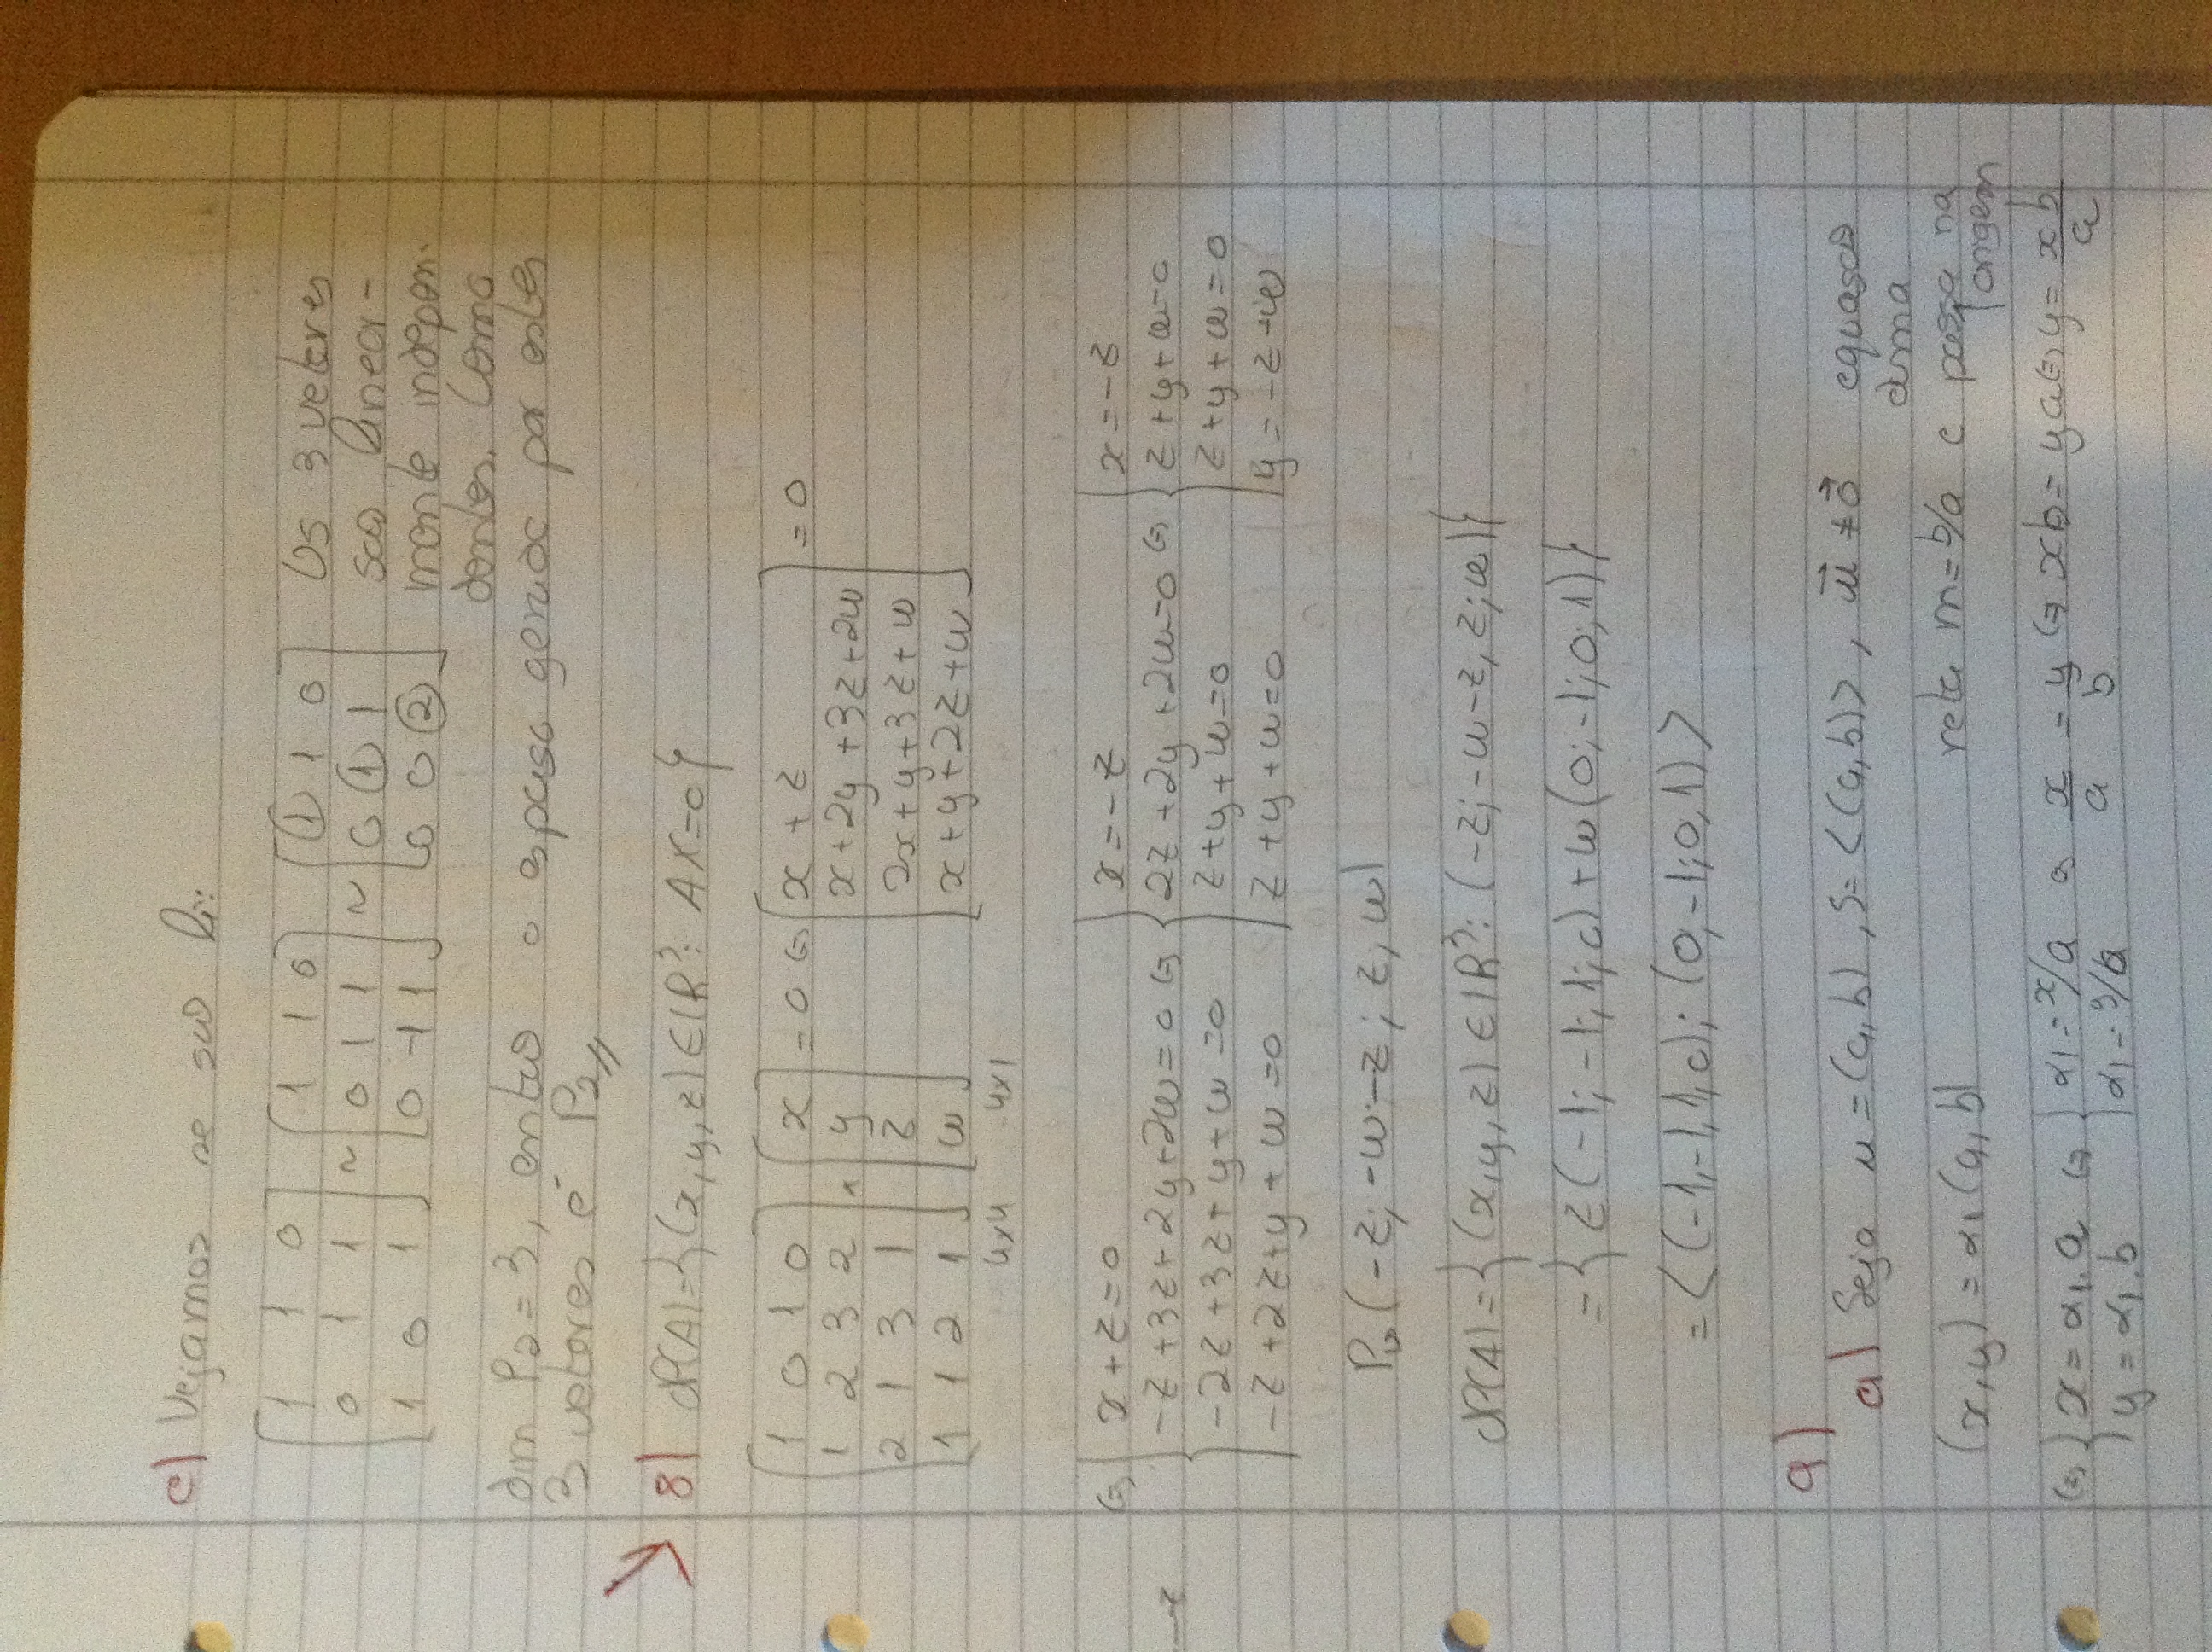 c) Vejamos se são li:
[1 1 0; 0 1 1; 1 0 1] ~ [1 1 0; 0 1 1; 0 -1 1] ~ [1 1 0; 0 1 1; 0 0 2] Os 3 vetores
são linear-
mente indepen-
dentes. Como
dim P2 = 3, então o espaço gerado por estes
3 vetores é P2 //
8) N(A) = {(x, y, z) ∈ IR³: AX = 0}
[1 0 1 0; 1 2 3 2; 2 1 3 1; 1 1 2 1] . [x; y; z; w] = 0 (=) [x + z; x + 2y + 3z + 2w; 2x + y + 3z + w; x + y + 2z + w] = 0
4x4 4x1
(=) { x + z = 0 { x = -z { x = -z
-z + 3z + 2y + 2w = 0 (=) 2z + 2y + 2w = 0 (=) z + y + w = 0
-2z + 3z + y + w = 0 z + y + w = 0 z + y + w = 0
-z + 2z + y + w = 0 z + y + w = 0 y = -z - w
(-z; -w - z; z; w)
N(A) = {(x, y, z) ∈ IR³: (-z; -w - z, z; w)}
= {z(-1; -1; 1; 0) + w(0; -1; 0, 1)}
= <(-1, -1, 1, 0); (0, -1; 0, 1)>
9)
a) Seja u = (a, b), S = <(a, b)>, u⃗ ≠ 0⃗ equação
duma
(x, y) = α1 (a, b) reta m = b/a e passa na
origem
(=) { x = α1 . a (=) { α1 = x/a x/a = y/b (=) xb = ya (=) y = xb/a
y = α1 . b α1 = y/b